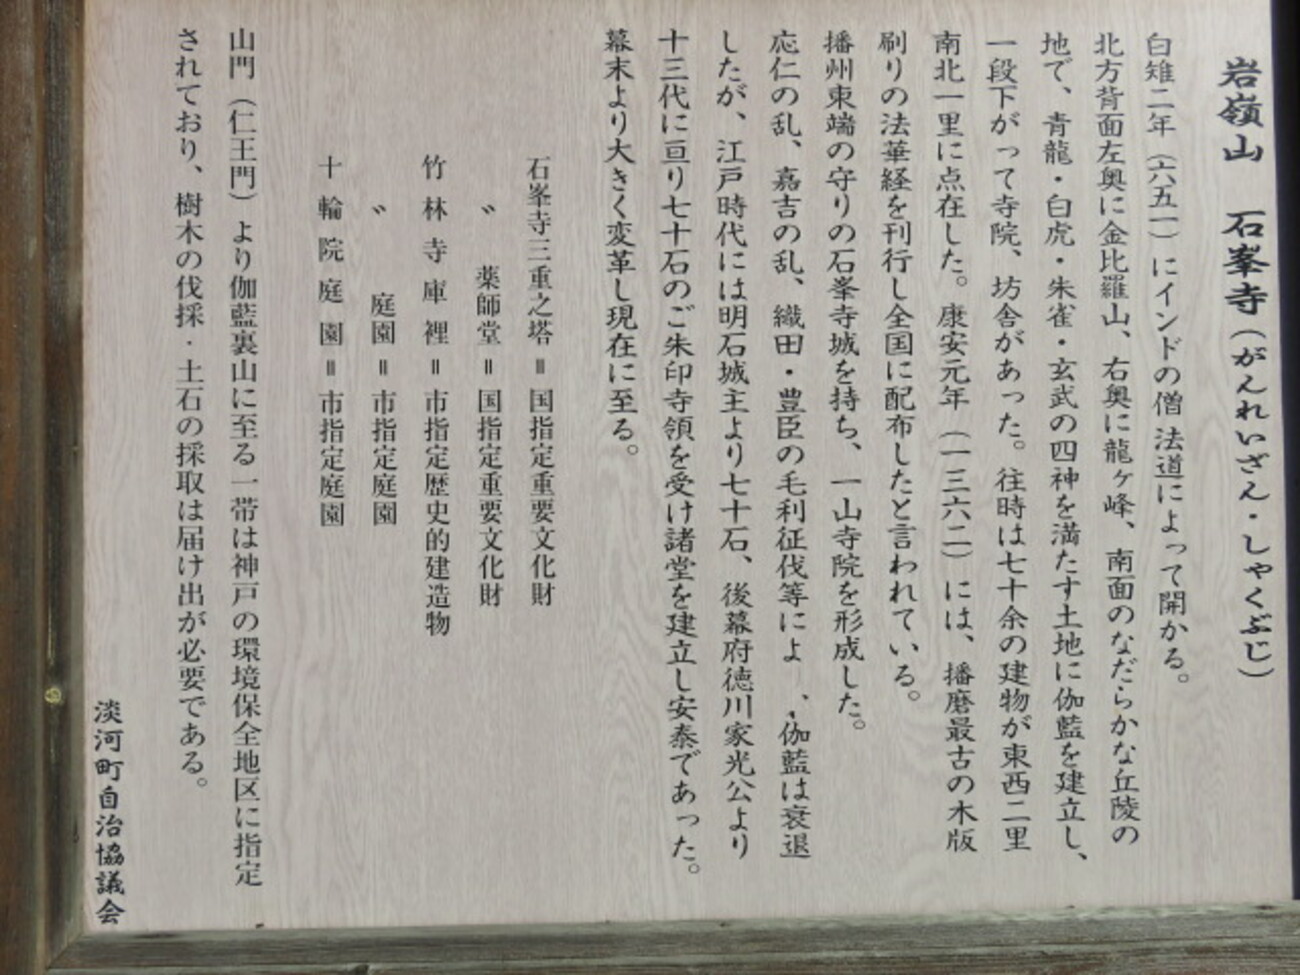 岩嶺山　石峯寺（がんれいざん・しゃくぶじ）
白雉二年（六五一）にインドの僧法道によって開かる。
北方背面左奥に金比羅山、右奥に龍ヶ峰、南面のなだらかな丘陵の
地で、青龍・白虎・朱雀・玄武の四神を満たす土地に伽藍を建立し、
一段下がって寺院、坊舎があった。往時は七十余の建物が東西二里
南北一里に点在した。康安元年（一三六二）には、播磨最古の木版
刷りの法華経を刊行し全国に配布したと言われている。
播州東端の守りの石峯寺城を持ち、一山寺院を形成した。
応仁の乱、嘉吉の乱、織田・豊臣の毛利征伐等によ、伽藍は衰退
したが、江戸時代には明石城主より七十石、後幕府徳川家光公より
十三代に亘り七十石のご朱印寺領を受け諸堂を建立し安泰であった。
幕末より大きく変革し現在に至る。
石峯寺三重之塔＝国指定重要文化財
〃　薬師堂＝国指定重要文化財
竹林寺庫裡＝市指定歴史的建造物
〃　庭園＝市指定庭園
十輪院庭園＝市指定庭園
山門（仁王門）より伽藍裏山に至る一帯は神戸の環境保全地区に指定
されており、樹木の伐採・土石の採取は届け出が必要である。
淡河町自治協議会